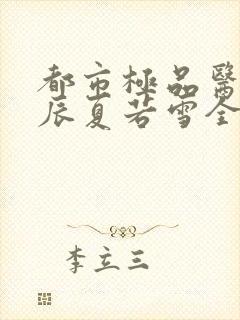 都市極品醫
辰夏若雪全
李立三